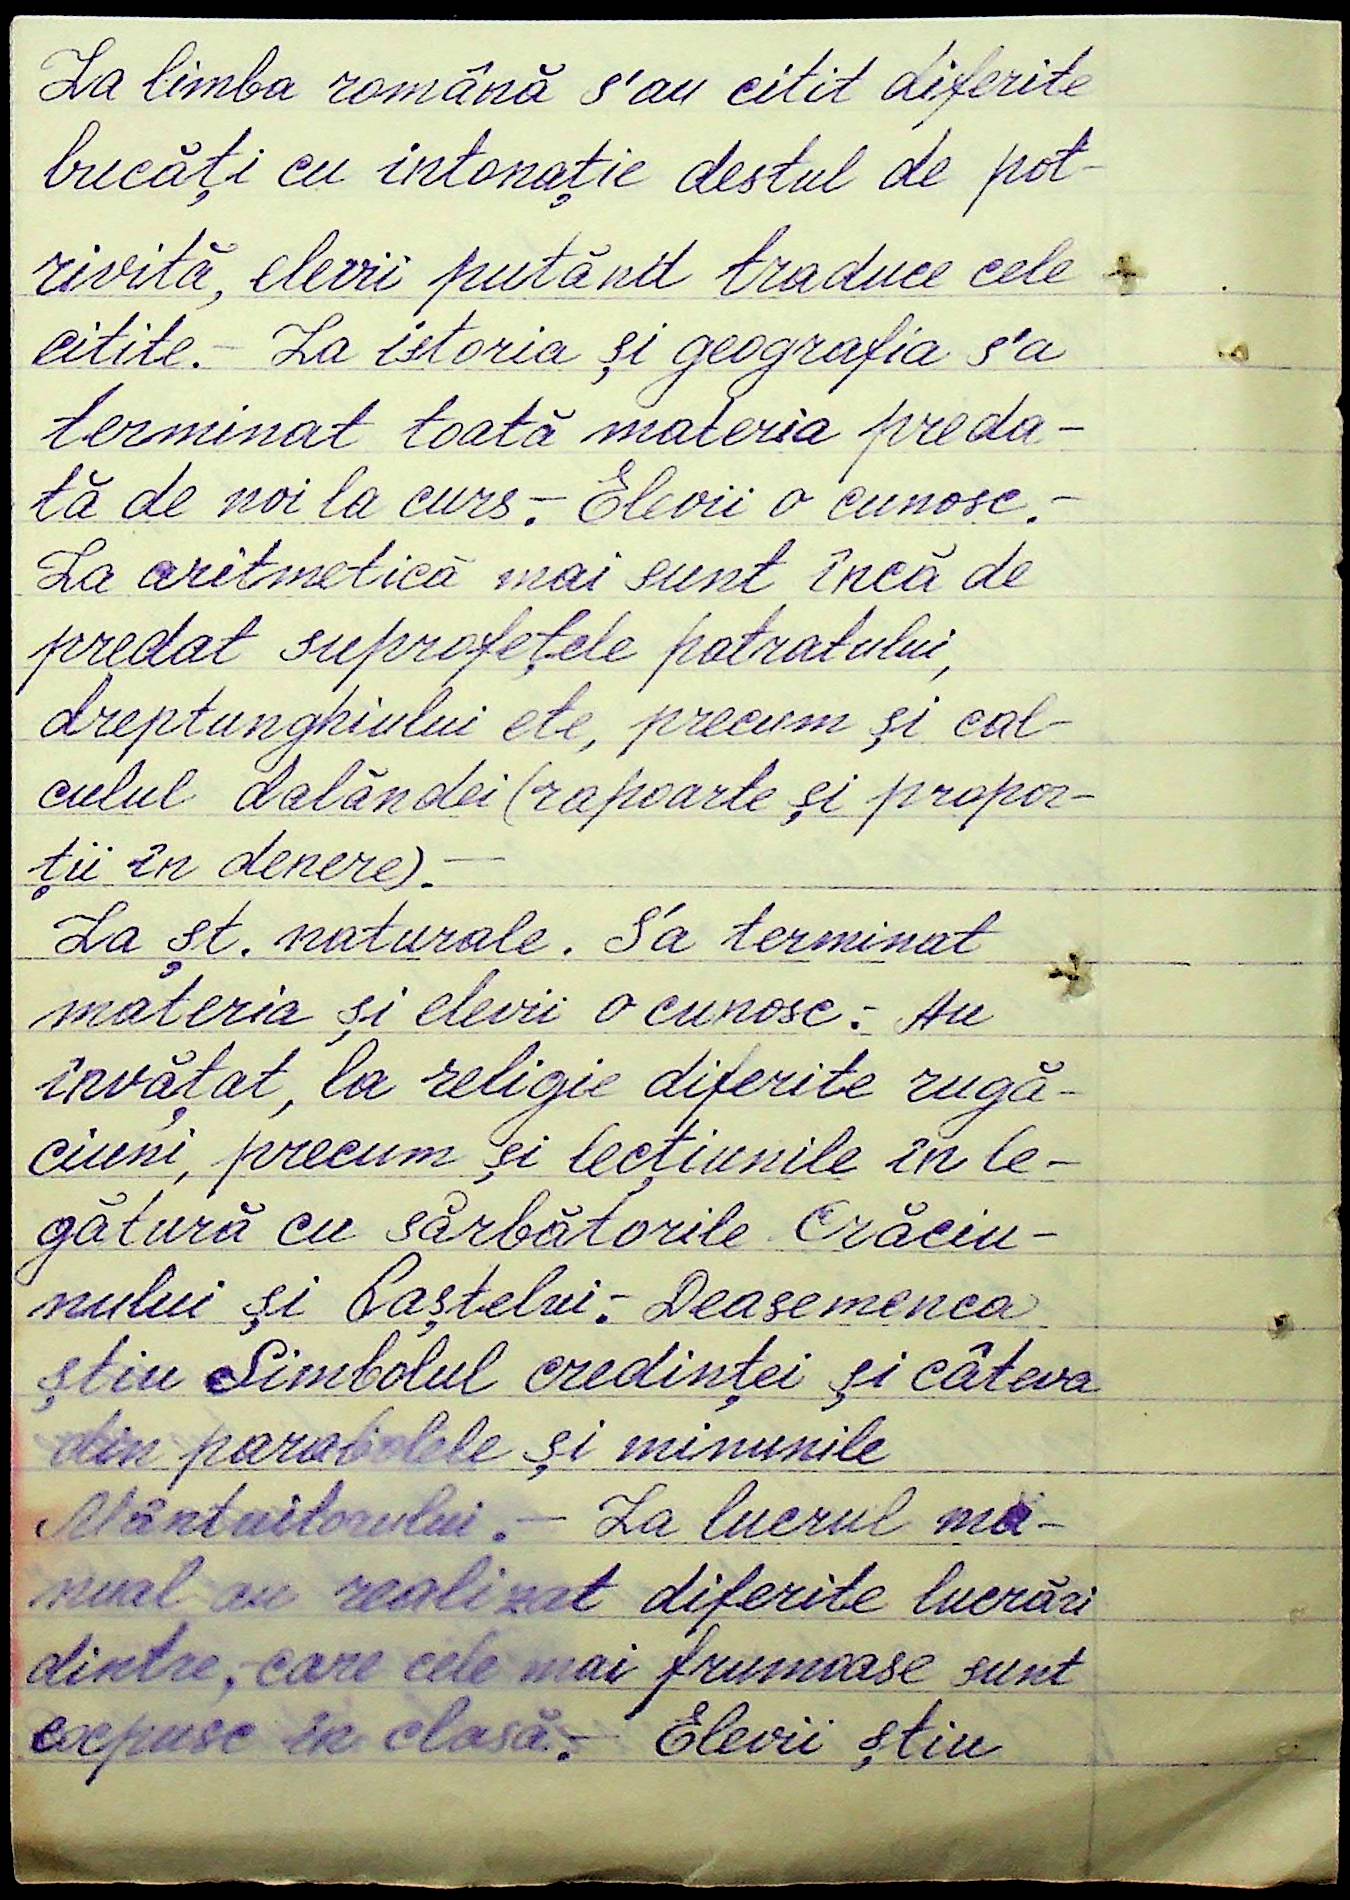 La limba română s'au citit diferite
bucăți cu intonație destul de pot-
rivită, elevii putănd traduce cele
citite.- La istoria și geografia s'a
terminat toată materia preda-
tă de noi la curs.- Elevii o cunosc.-
La aritmetică mai sunt încă de
predat suprafețele patratului,
dreptunghiului etc, precum și cal-
culul dalăndei (rapoarte și propor-
ții în denere).-
La șt. naturale. S'a terminat
materia și elevii o cunosc.- Au
învățat, la religie diferite rugă-
ciuni, precum și lecțiunile în le-
gătură cu sărbătorile Crăciu-
nului și Paștelui.- Deasemenea
știu Simbolul credinței și câteva
din parabolele și minunile
Mântuitorului.- La lucrul ma-
nual au realizat diferite lucrări
dintre, care cele mai frumoase sunt
expuse în clasă.- Elevii știu